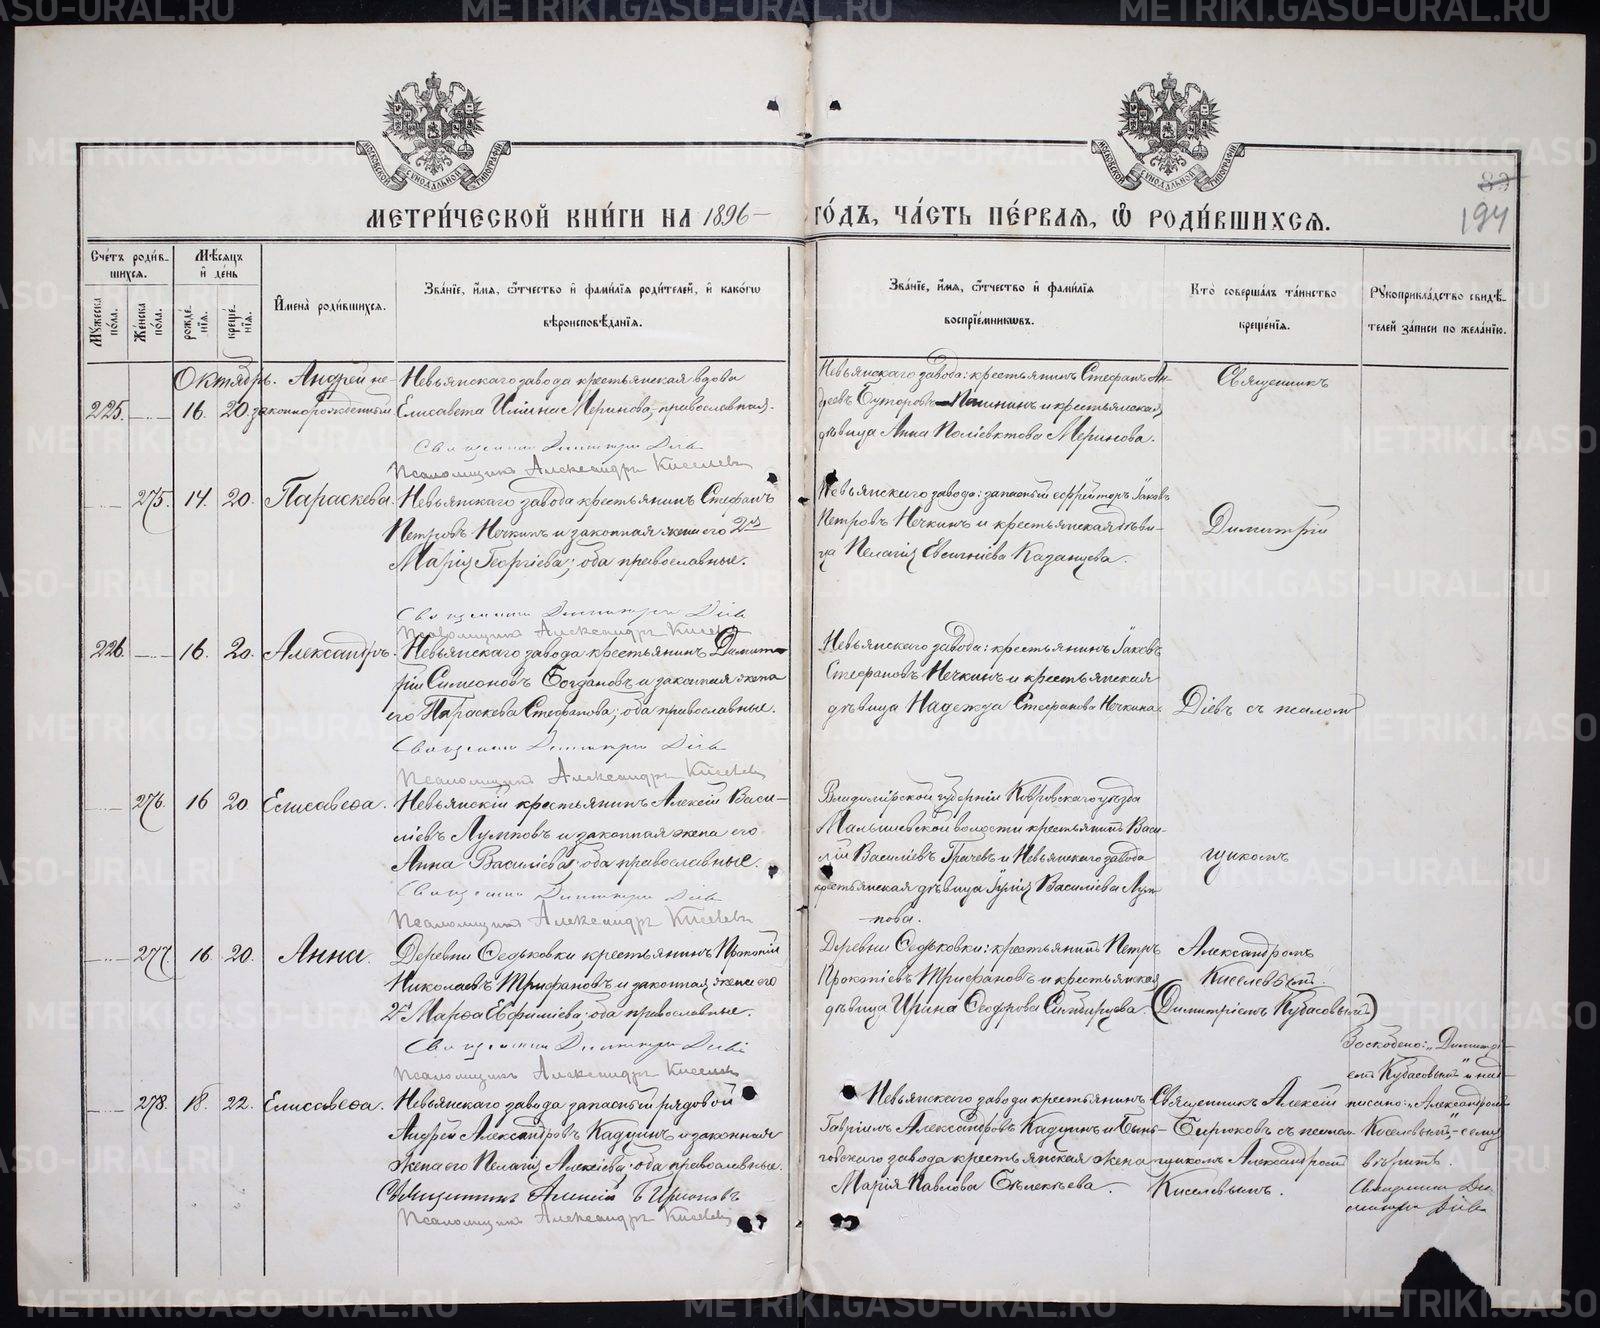 МЕТРИ́ЧЕСКОЙ КНИ́ГИ НА 1896 ГО́ДЪ, ЧА́СТЬ ПЕ́РВАЯ, Ѽ РОДИ́ВШИХСЯ.
194
Сче́тъ роди́в-
шихся.
Мꙋжеска по́ла.
Же́нска по́ла.
Мѣ́сяцъ и҆ де́нь
рожде́-
нїя.
креще́-
нїя.
И҆мена̀ роди́вшихся.
Зва́нїе, и҆́мя, ѻ҆́тчество и҆ фами́лїя роди́телей, и҆ како́гѡ
вѣроисповѣ́данїя.
Зва́нїе, и҆́мя, ѻ҆́тчество и҆ фами́лїя
воспрїе́мникѡвъ.
Кто̀ соверша́лъ та́инство
креще́нїя.
Рꙋкоприкла́дство свидѣ́-
телей за́писи по жела́нїю.
Октябрь.
225. 16. 20. Андрей не-
законнорожденный
Невьянскаго завода крестьянская вдова
Елисавета Ильина Меринова, православная.
Священникъ Димитрій Діевъ
Псаломщикъ Александръ Киселевъ
Невьянскаго завода: крестьянинъ Стефанъ Ан-
дреевъ и крестьянская
дѣвица Анна Поліевктова Меринова.
Священникъ
275. 14. 20. Параскева.
Невьянскаго завода крестьянинъ Стефанъ
Петровъ Нечкинъ и законная жена его 2я
Марія Георгіева; оба православные.
Священникъ Димитрій Діевъ
Псаломщикъ Александръ Киселевъ
Невьянскаго завода: запасный ефрейторъ Іаковъ
Петровъ Нечкинъ и крестьянская дѣви-
ца Пелагія Евсигніева Казанцева.
Димитрій
226. 16. 20. Александръ.
Невьянскаго завода крестьянинъ Димит-
рій Симеоновъ Богдановъ и законная жена
его Параскева Стефанова; оба православные.
Священникъ Димитрій Діевъ
Псаломщикъ Александръ Киселевъ
Невьянскаго завода: крестьянинъ Іаковъ
Стефановъ Нечкинъ и крестьянская
дѣвица Надежда Стефанова Нечкина.
Діевъ съ псалом
276. 16 20 Елисавеѳа.
Невьянскій крестьянинъ Алексій Васи-
ліевъ Лумповъ и законная жена его
Анна Василіева; оба православные.
Священникъ Димитрій Діевъ
Псаломщикъ Александръ Киселевъ
Владимірской губерніи Ковровскаго уѣзда
Малышевской волости крестьянинъ Васи-
лій Василіевъ Грачевъ и Невьянскаго завода
крестьянская дѣвица Іулія Василіева Лум-
пова.
щикомъ
277. 16. 20. Анна.
Деревни Ѳедьковки крестьянинъ Прокопій
Николаевъ Трифановъ и законная жена его
2я Марѳа Евфиміева; оба православные.
Священникъ Димитрій Діевъ
Псаломщикъ Александръ Киселевъ
Деревни Ѳедьковки: крестьянинъ Петръ
Прокопіевъ Трифановъ и крестьянская
дѣвица Ирина Ѳеодорова Сибирцева.
Александромъ
Киселевымъ
(Димитріемъ Кубасовымъ)
Заскоблено: „Димитрі-
емъ Кубасовымъ“ и над-
писано: „Александромъ
Киселевымъ“ - сему
вѣрить.
Священникъ Ди-
митрій Діевъ
278. 18. 22. Елисавеѳа.
Невьянскаго завода запасный рядовой
Андрей Александровъ Кадцинъ и законная
жена его Пелагія Алексіева; оба православные.
Священникъ Алексій Бирюковъ
Псаломщикъ Александръ Киселевъ
Невьянскаго завода крестьянинъ
Гавріилъ Александровъ Кадцинъ и Быньговскаго завода крестьянская жена
Марія Павлова Бѣлекѣева.
Священникъ Алексій
Бирюковъ съ псалом-
щикомъ Александромъ
Киселевымъ.
METRIKI.GASO-URAL.RU